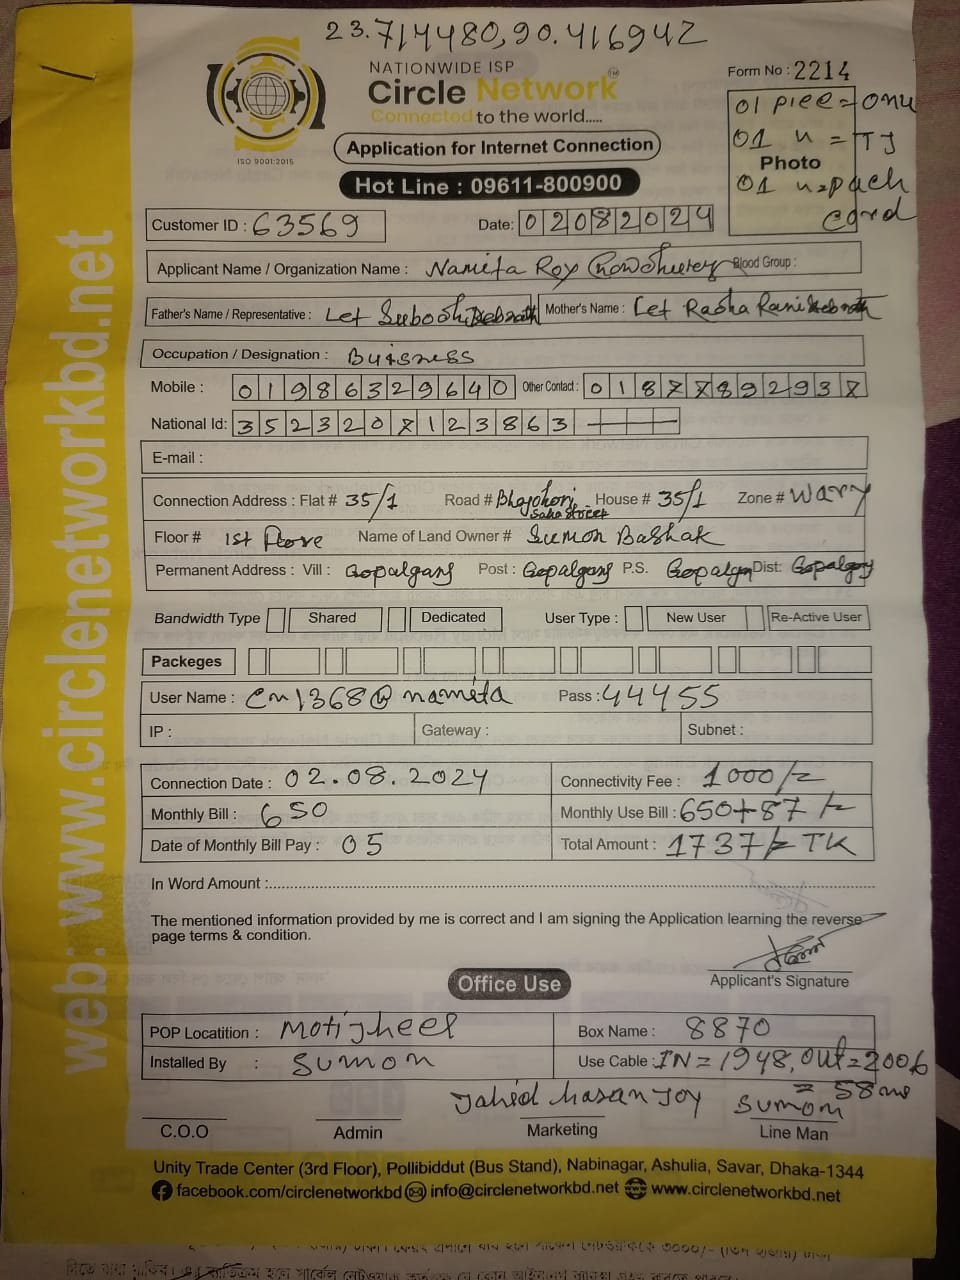 23.714480,90.416942
NATIONWIDE ISP
Circle Network TM
Connected to the world.....
ISO 9001:2015
Application for Internet Connection
Hot Line : 09611-800900
Form No : 2214
01 piee = onu
01 u = TJ
Photo
01 u = pach
cord
Customer ID : 63569
Date: 02082024
Applicant Name / Organization Name : Namita Roy Chowdhurey Blood Group :
Father's Name / Representative : Let Subosh Debnath Mother's Name : Let Radha Rani Debnath
Occupation / Designation : Buisness
Mobile : 01986329640 Other Contact : 01877892937
National Id: 3523207123863
E-mail :
Connection Address : Flat # 35/1 Road # Bhajohori Saha Street House # 35/1 Zone # Wary
Floor # 1st Flore Name of Land Owner # Sumon Bashak
Permanent Address : Vill : Gopalganj Post : Gopalganj P.S. Gopalgan Dist: Gopalganj
Bandwidth Type Shared Dedicated User Type : New User Re-Active User
Packeges
User Name : cn1368@namita Pass : 44455
IP : Gateway : Subnet :
Connection Date : 02.08.2024 Connectivity Fee : 1000/=
Monthly Bill : 650 Monthly Use Bill : 650+87/=
Date of Monthly Bill Pay : 05 Total Amount : 1737/= TK
In Word Amount :
The mentioned information provided by me is correct and I am signing the Application learning the reverse
page terms & condition.
Applicant's Signature
Office Use
POP Locatition : Motijheel Box Name : 8870
Installed By : Sumon Use Cable : IN = 1948, out = 2006
= 58 m
Jahid hasan Joy Sumon
C.O.O Admin Marketing Line Man
Unity Trade Center (3rd Floor), Pollibiddut (Bus Stand), Nabinagar, Ashulia, Savar, Dhaka-1344
facebook.com/circlenetworkbd info@circlenetworkbd.net www.circlenetworkbd.net
web: www.circlenetworkbd.net